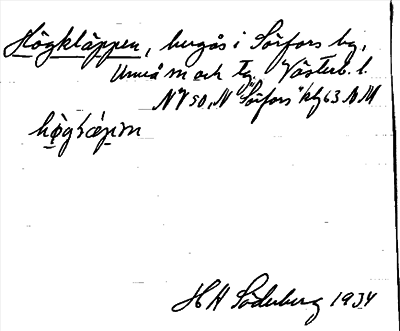 Högkläppen, bergås i Sörfors by,
Umeå sn och tg. Västerb. l.
NV 50, N "Sörfors" kbl 63 NM
H A Söderberg 1934